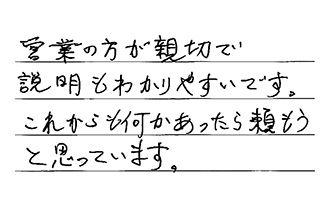 営業の方が親切で
説明もわかりやすいです。
これからも何かあったら頼もう
と思っています。